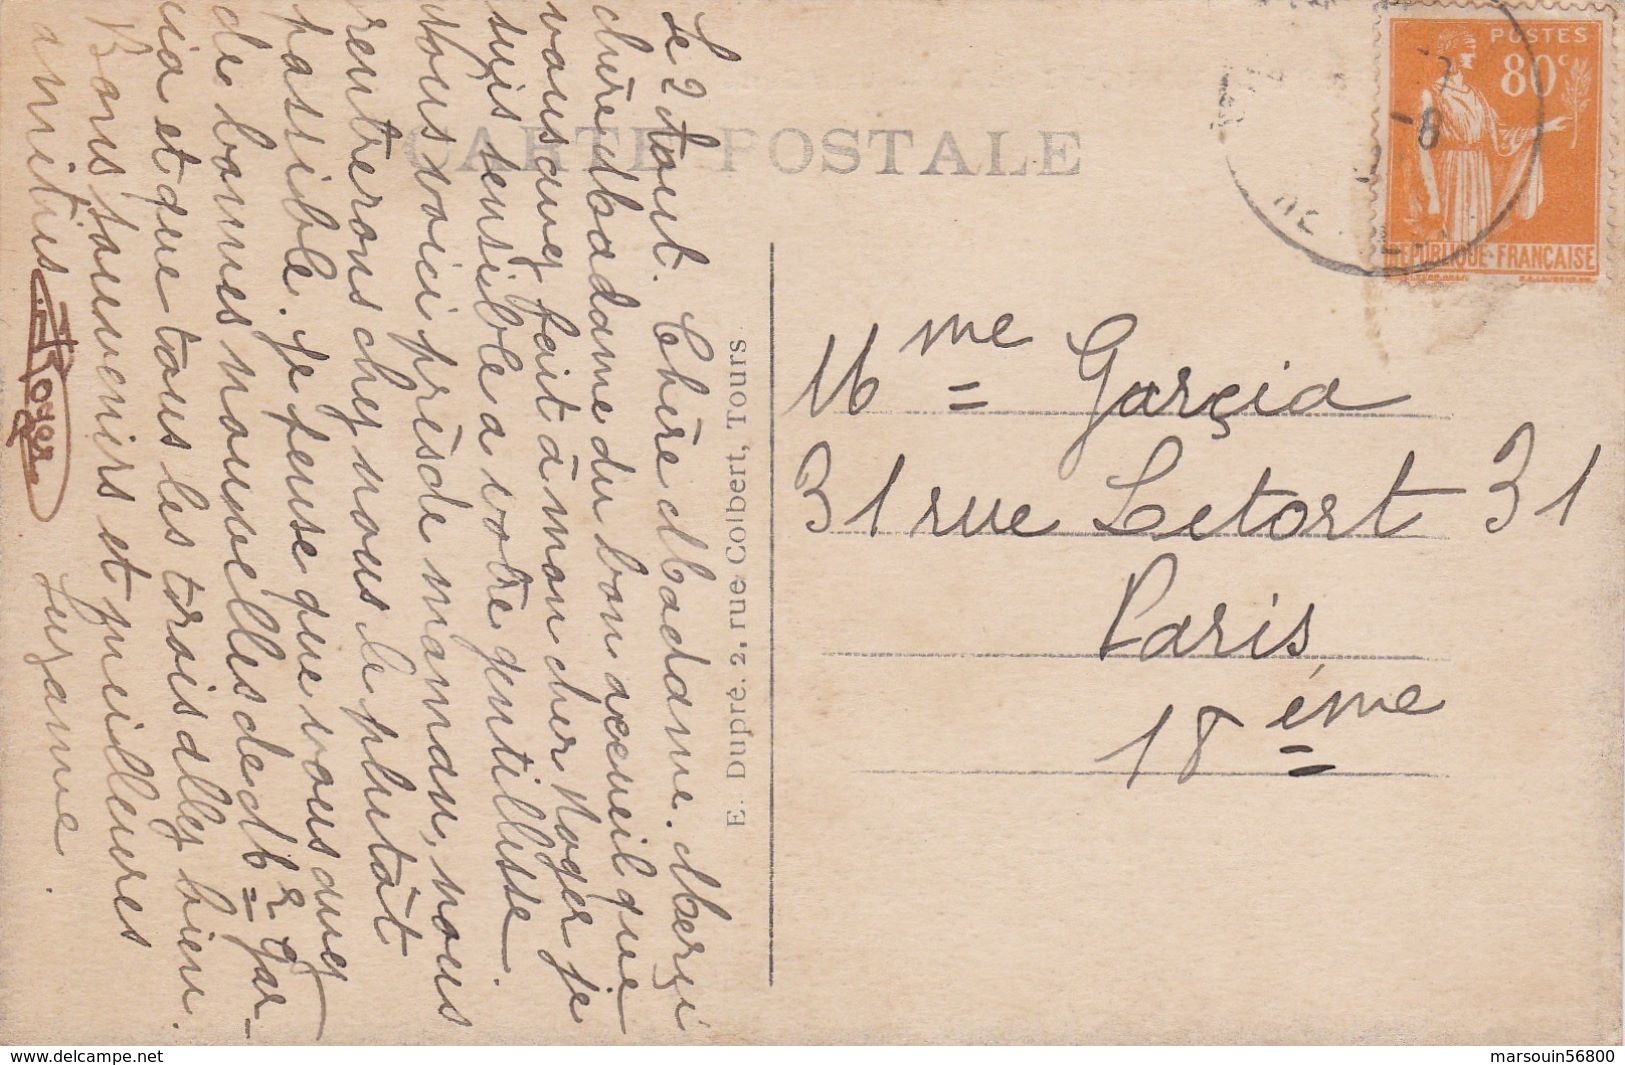 CARTE POSTALE
Le 2 Aout. Chère Madame. Merçi
chère Madame du bon acceuil que
vous avez fait à mon cher Roger je
suis sensible a votre gentillesse.
Nous voici près de maman, nous
rentrerons chez nous le plutôt
possible. Je pense que vous avez
de bonnes nouvelles de Mr Gar-
cia et que tous les trois allez bien.
Bons souvenirs et meilleures
amitiés Suzanne.
Roger
E. Dupré, 2, rue Colbert, Tours.
POSTES
80c
REPUBLIQUE-FRANÇAISE
Mme Garçia
31 rue Letort 31
Paris
18ème
www.delcampe.net
marsouin56800